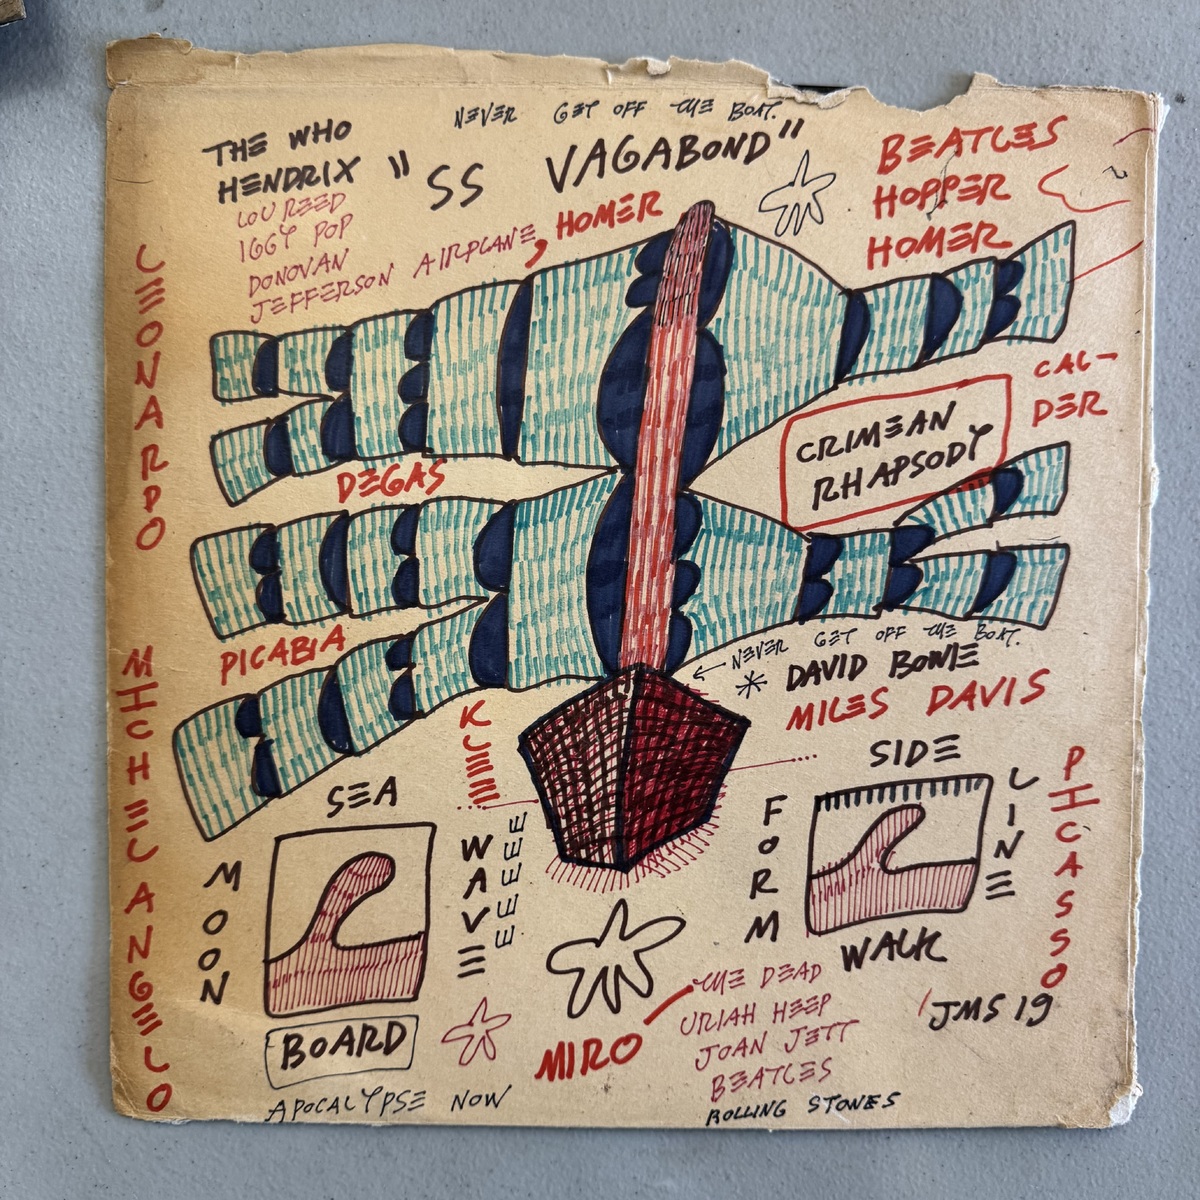 NEVER GET OFF THE BOAT.
THE WHO
HENDRIX
"SS VAGABOND"
LOU REED
IGGY POP
DONOVAN
JEFFERSON AIRPLANE, HOMER
BEATLES
HOPPER
HOMER
LEONARDO
CAL-
DER
CRIMEAN
RHAPSODY
DEGAS
PICABIA
NEVER GET OFF THE BOAT.
DAVID BOWIE
MILES DAVIS
MICHELANGELO
KLEE
SEA
MOON
WAVE
EEEEEE
BOARD
APOCALYPSE NOW
SIDE
FORM
LINE
WALK
PICASSO
JMS 19
MIRO
THE DEAD
URIAH HEEP
JOAN JETT
BEATLES
ROLLING STONES